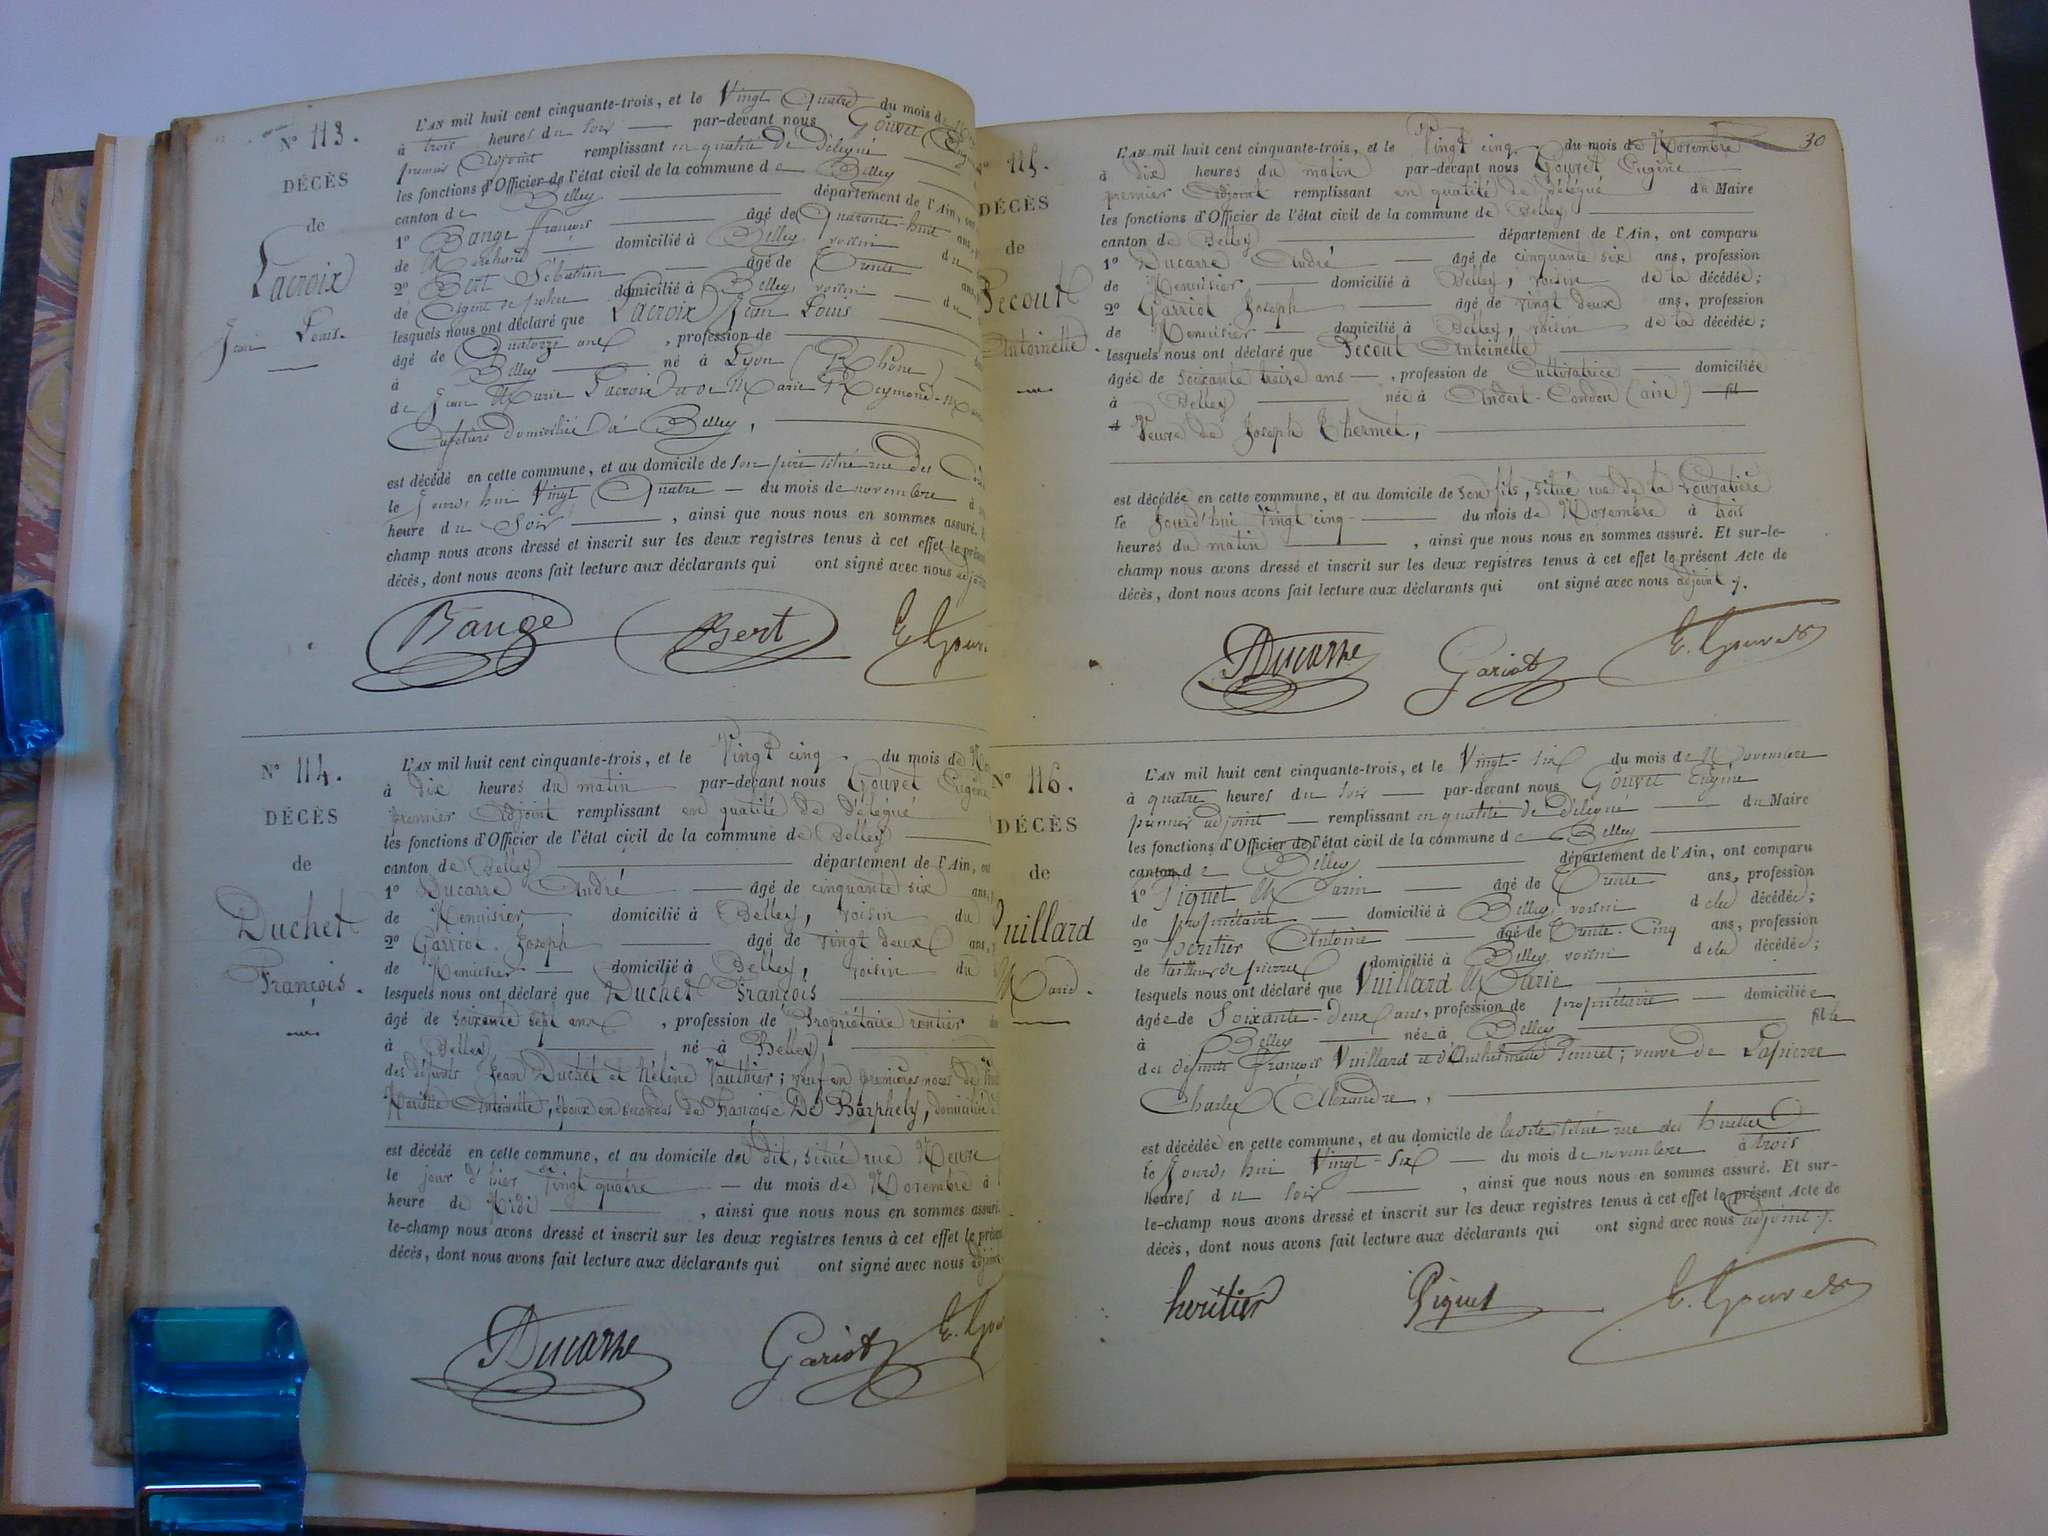 N° 113.
DÉCÈS
de
Lacroix
Jean Louis.
L'AN mil huit cent cinquante-trois, et le Vingt Quatre du mois de
à trois heures du soir par-devant nous Gouvet
premier Adjoint remplissant en qualité de Délégué
les fonctions d'Officier de l'état civil de la commune de Belley
canton de Belley département de l'Ain, ont
1° Bange françois âgé de Quarante-huit ans,
de Maréchand domicilié à Belley, voisin du
2° Bert Sébastien âgé de Trente ans,
de Agent de police domicilié à Belley, voisin du
lesquels nous ont déclaré que Lacroix Jean Louis
âgé de Quatorze ans, profession de
à Belley né à Lyon (Rhône)
de Jean Marie Lacroix et de Marie Reymond
Cafetiers domiciliés à Belley,
est décédé en cette commune, et au domicile de son père situé rue des
le Jourd'hui Vingt Quatre du mois de novembre à
heure du Soir, ainsi que nous nous en sommes assuré.
champ nous avons dressé et inscrit sur les deux registres tenus à cet effet le présent
décès, dont nous avons fait lecture aux déclarants qui ont signé avec nous adjoint
Bange Bert E. Gouv
N° 114.
DÉCÈS
de
Duchet
François.
L'AN mil huit cent cinquante-trois, et le Vingt cinq du mois de No
à dix heures du matin par-devant nous Gouvet Eugène
premier Adjoint remplissant en qualité de délégué
les fonctions d'Officier de l'état civil de la commune de Belley
canton de Belley département de l'Ain, ont
1° Ducarre André âgé de cinquante six ans,
de Menuisier domicilié à Belley, voisin du
2° Garriot Joseph âgé de vingt deux ans,
de Menuisier domicilié à Belley, voisin du
lesquels nous ont déclaré que Duchet François
âgé de soixante sept ans, profession de Propriétaire rentier
à Belley né à Belley
des défunts Jean Duchet et Hélène Vauthier; veuf en premières noces de
Mariette Antoinette, époux en secondes de Françoise De Barphely, domiciliée
est décédé en cette commune, et au domicile du dit, situé rue Neuve
le jour d'hier vingt quatre du mois de Novembre à
heure de Midi, ainsi que nous nous en sommes assuré.
le-champ nous avons dressé et inscrit sur les deux registres tenus à cet effet le présent
décès, dont nous avons fait lecture aux déclarants qui ont signé avec nous adjoint
Ducarre Gariot E. Gou
30
115.
DÉCÈS
de
Pecout
Antoinette.
L'AN mil huit cent cinquante-trois, et le Vingt cinq du mois de Novembre
à dix heures du matin par-devant nous Gouvet Eugène
premier Adjoint remplissant en qualité de délégué du Maire
les fonctions d'Officier de l'état civil de la commune de Belley
canton de Belley département de l'Ain, ont comparu
1° Ducarre André âgé de cinquante six ans, profession
de Menuisier domicilié à Belley, voisin de la décédée;
2° Garriot Joseph âgé de vingt deux ans, profession
de Menuisier domicilié à Belley, voisin de la décédée;
lesquels nous ont déclaré que Pecout Antoinette
âgée de soixante treize ans, profession de Cultivatrice domiciliée
à Belley née à Andert-Condon (ain) fil
Veuve de Joseph Thermet,
est décédée en cette commune, et au domicile de son fils, situé rue de la
le Jourd'hui vingt cinq du mois de Novembre à trois
heures du matin, ainsi que nous nous en sommes assuré. Et sur-le-
champ nous avons dressé et inscrit sur les deux registres tenus à cet effet le présent Acte de
décès, dont nous avons fait lecture aux déclarants qui ont signé avec nous adjoint
Ducarre Gariot E. Gouvet
N° 116.
DÉCÈS
de
Vuillard
Marie.
L'AN mil huit cent cinquante-trois, et le Vingt-six du mois de Novembre
à quatre heures du soir par-devant nous Gouvet Eugène
premier adjoint remplissant en qualité de délégué du Maire
les fonctions d'Officier de l'état civil de la commune de Belley
canton de Belley département de l'Ain, ont comparu
1° Piguet Marin âgé de Trente ans, profession
de propriétaire domicilié à Belley, voisin de la décédée;
2° heritier Antoine âgé de Trente-Cinq ans, profession
de tailleur de pierre domicilié à Belley, voisin de la décédée;
lesquels nous ont déclaré que Vuillard Marie
âgée de Soixante-deux ans, profession de propriétaire domiciliée
à Belley née à Belley fille
des défunts François Vuillard et d'Anthelmette; veuve de Lapierre
Charles Alexandre,
est décédée en cette commune, et au domicile de ladite situé rue des
le Jourd'hui Vingt-Six du mois de novembre à trois
heures du soir, ainsi que nous nous en sommes assuré. Et sur-
le-champ nous avons dressé et inscrit sur les deux registres tenus à cet effet le présent Acte de
décès, dont nous avons fait lecture aux déclarants qui ont signé avec nous adjoint
heritier Piguet E. Gouvet